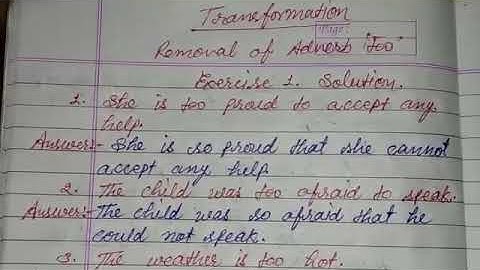 Transformation
Page:
Removal of Adverb "Too"
Exercise 1. Solution.
1. She is too proud to accept any
help.
Answer:- She is so proud that she cannot
accept any help
2. The child was too afraid to speak.
Answer:- The child was so afraid that he
could not speak.
3. The weather is too hot.